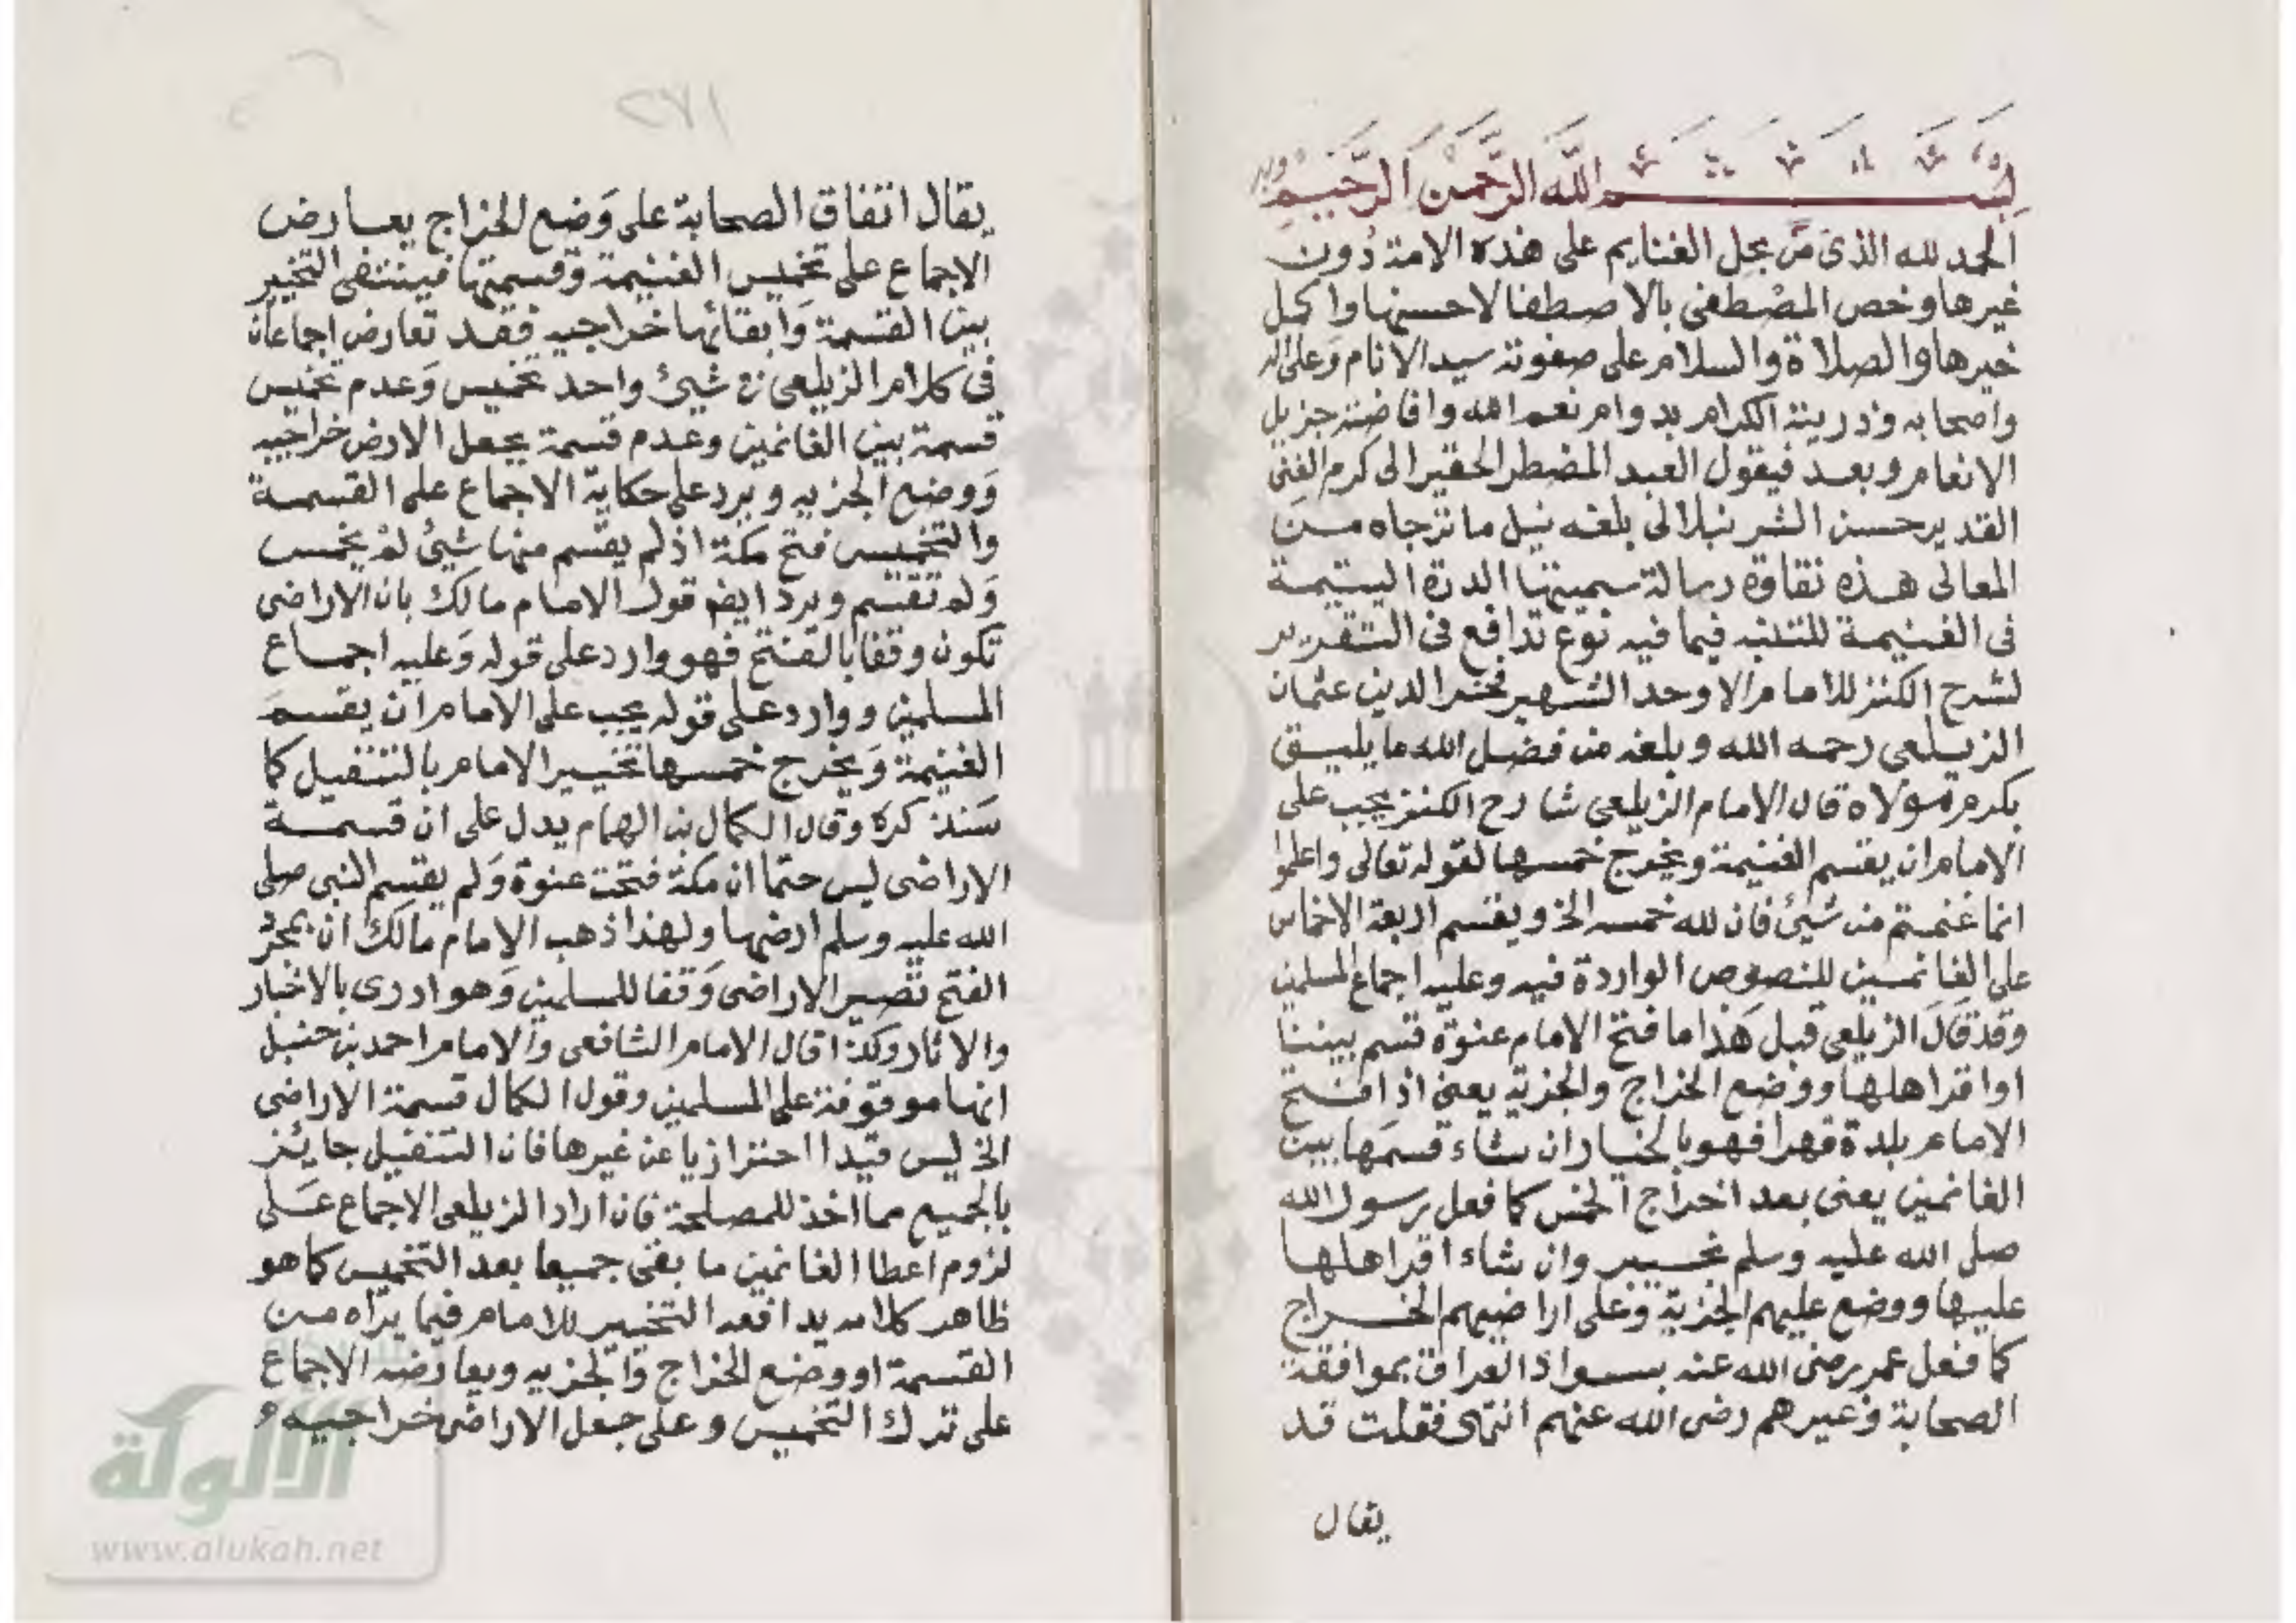 بسم الله الرحمن الرحيم
الحمد لله الذى من بحل الغنايم على هذه الامة دون
غيرها وخص المصطفى بالاصطفا لاحسنها واكمل
خيرها والصلاة والسلام على صفوته سيد الانام وعلى اله
واصحابه وذريته الكرام بدوام نعم الله وافاضته جزيل
الانعام وبعد فيقول العبد المضطر الحقير الى كرم الغنى
القدير حسن الشرنبلالى بلغه نيل ما ترجاه من
المعالى هذه نقاوة رسالة سميتها الدرة اليتيمة
فى الغنيمة للتنبه فيما فيه نوع تدافع فى التقرير
لشرح الكنز للامام الاوحد الشهير فخر الدين عثمان
الزيلعى رحمه الله وبلغه من فضل الله ما يليق
بكرم مولاه قال الامام الزيلعى شارح الكنز يجب على
الامام ان يقسم الغنيمة ويخرج خمسها لقوله تعالى واعلموا
انما غنمتم من شيئ فان لله خمسه الخ ويقسم اربعة الاخماس
على الغانمين للنصوص الواردة فيه وعليه اجماع المسلمين
وقد قال الزيلعى قبل هذا ما فتح الامام عنوة قسم بيننا
او اقر اهلها ووضع الخراج والجزية يعنى اذا فتح
الامام بلدة قهرا فهو بالخيار ان شاء قسمها بين
الغانمين يعنى بعد اخراج الخمس كما فعل رسول الله
صلى الله عليه وسلم بخيبر وان شاء اقر اهلها
عليها ووضع عليهم الجزية وعلى اراضيهم الخراج
كما فعل عمر رضى الله عنه بسواد العراق بموافقة
الصحابة وغيرهم رضى الله عنهم انتهى فقلت قد
يقال
٢٧١
يقال اتفاق الصحابة على وضع الخراج يعارض
الاجماع على تخميس الغنيمة وقسمتها فينتفى التخيير
بين القسمة وابقائها خراجيه فقد تعارض اجماعان
فى كلام الزيلعى فى شيئ واحد تخميس وعدم تخميس
قسمة بين الغانمين وعدم قسمة بجعل الارض خراجيه
ووضع الجزيه ويرد على حكاية الاجماع على القسمة
والتخميس فتح مكة اذ لم يقسم منها شيئ لم يخمس
ولم تقسم ويرد ايضا قول الامام مالك بان الاراضى
تكون وقفا بالفتح فهو وارد على قوله وعليه اجماع
المسلمين ووارد على قوله يجب على الامام ان يقسم
الغنيمة ويخرج خمسها تخيير الامام بالتنفيل كما
سنذكره وقال الكمال بن الهمام يدل على ان قسمة
الاراضى ليس حتما ان مكة فتحت عنوة ولم يقسم النبى صلى
الله عليه وسلم ارضها ولهذا ذهب الامام مالك ان بمجرد
الفتح تصير الاراضى وقفا للمسلمين وهو ادرى بالاخبار
والاثار وكذا قال الامام الشافعى والامام احمد بن حنبل
انها موقوفة على المسلمين وقول الكمال قسمة الاراضى
الخ ليس قيدا احترازيا عن غيرها فان التنفيل جايئز
بالجميع مما اخذ للمصلحة فان اراد الزيلعى الاجماع على
لزوم اعطا الغانمين ما بقى جميعا بعد التخميس كما هو
ظاهر كلامه يدافعه التخيير للامام فيما يراه من
القسمة او وضع الخراج والجزيه ويعارضه الاجماع
على ترك التخميس وعلى جعل الاراضى خراجيه
الألوكة
www.alukah.net